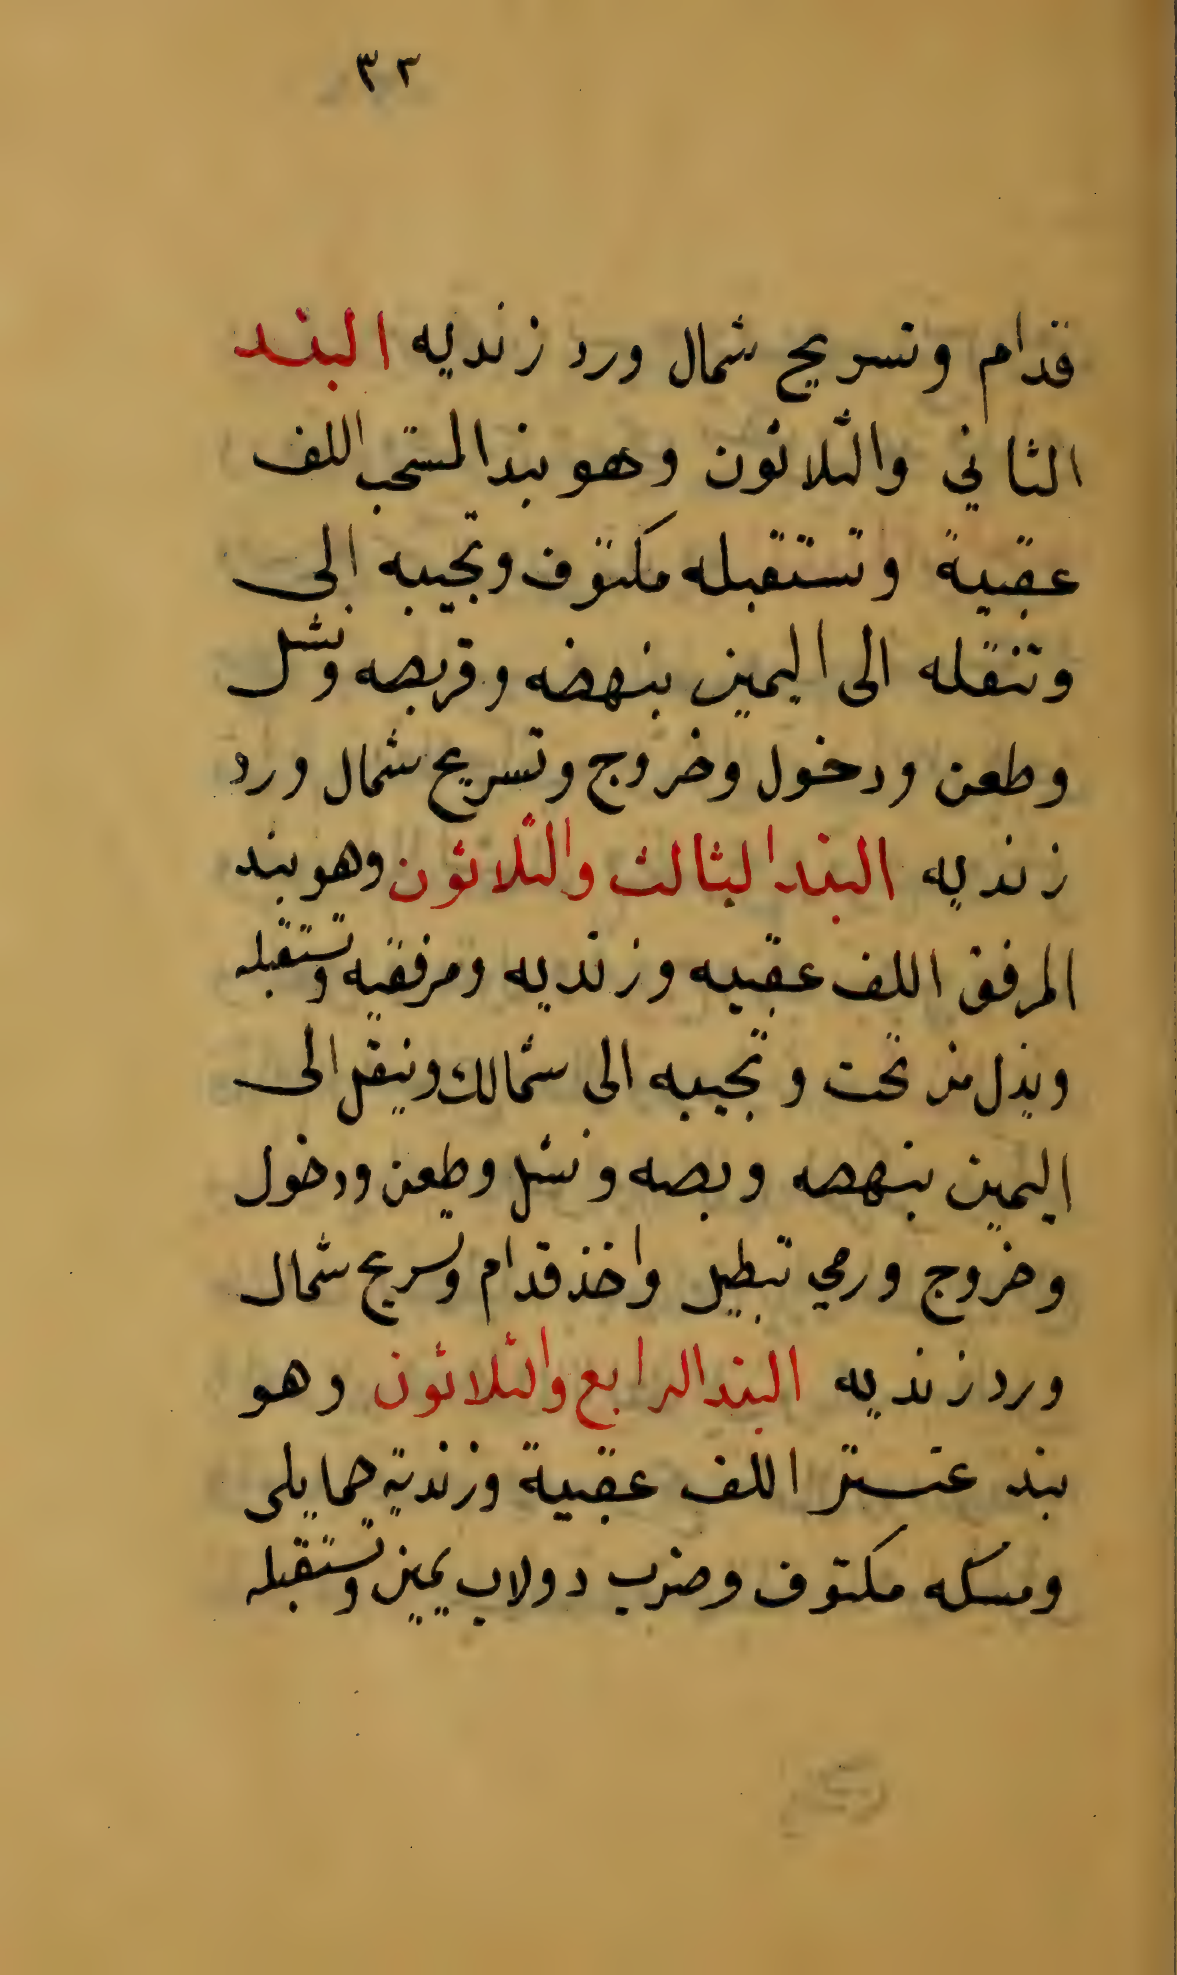 ٣٢
قدام وتسريح شمال ورد زنديه البند
الثاني والثلاثون وهو بند المستحب اللف
عقبية وتستقبله مكتوف وتجيبه الى
وتنقله الى اليمين بنهضه وقربصه ونشل
وطعن ودخول وخروج وتسريح شمال ورد
زنديه البند الثالث والثلاثون وهو بند
المرفق اللف عقبيه وزنديه ومرفقيه وتستقبله
وينزل من تحت وتجيبه الى شمالك وينقل الى
اليمين بنهصه وبصه ونشل وطعن ودخول
وخروج ورمي تبطيل واخذ قدام وتسريح شمال
ورد زنديه البند الرابع والثلاثون وهو
بند عنتر اللف عقبية وزندية حمايلى
ومسكه مكتوف وضرب دولاب يمين وتستقبله